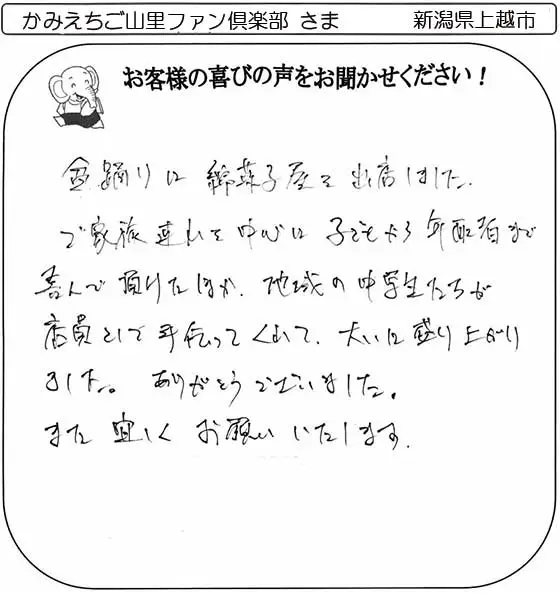 かみえちご山里ファン倶楽部 さま 新潟県上越市
お客様の喜びの声をお聞かせください！
盆踊りに 綿菓子屋を 出店しました.
ご家族連れを中心に 子どもから 年配者まで
喜んで頂けたほか、地域の中学生たちが
店員として手伝ってくれて、大いに盛り上がり
ました。ありがとうございました。
また 宜しく お願い いたします.